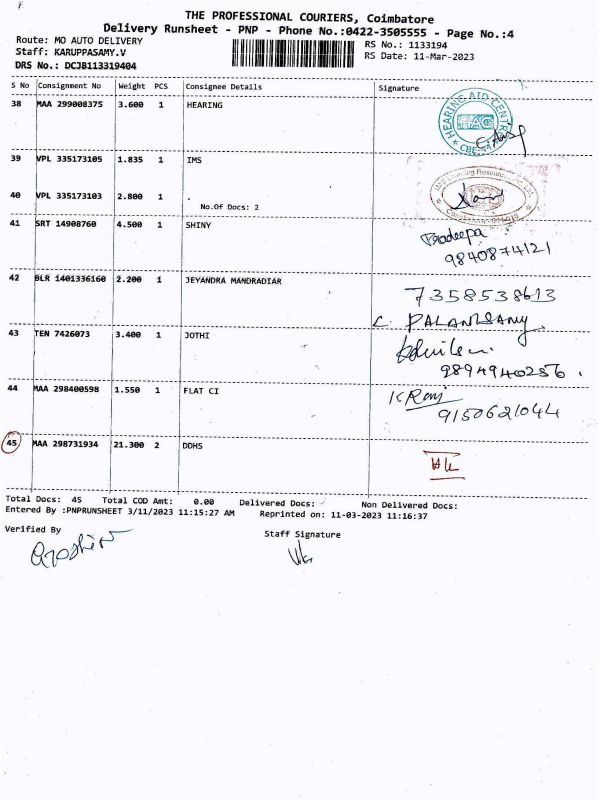 THE PROFESSIONAL COURIERS, Coimbatore
Delivery Runsheet - PNP - Phone No.:0422-3505555 - Page No.:4
Route: MO AUTO DELIVERY RS No.: 1133194
Staff: KARUPPASAMY.V RS Date: 11-Mar-2023
DRS No.: DCJB113319404
S No Consignment No Weight PCS Consignee Details Signature
38 MAA 299008375 3.600 1 HEARING
HEARING AID CENTRE
HAC
CBE
39 VPL 335173105 1.835 1 IMS
Learning Resources
40 VPL 335173103 2.800 1 .
No.Of Docs: 2
41 SRT 14908760 4.500 1 SHINY
Pradeepa
9840874121
42 BLR 1401336160 2.200 1 JEYANDRA MANDRADIAR
7358538613
C. PALANISAMY
43 TEN 7426073 3.400 1 JOTHI
9894940256.
44 MAA 298400598 1.550 1 FLAT CI
K Raj
9150621044
45 MAA 298731934 21.300 2 DDHS
Total Docs: 45 Total COD Amt: 0.00 Delivered Docs: Non Delivered Docs:
Entered By :PNPRUNSHEET 3/11/2023 11:15:27 AM Reprinted on: 11-03-2023 11:16:37
Verified By Staff Signature